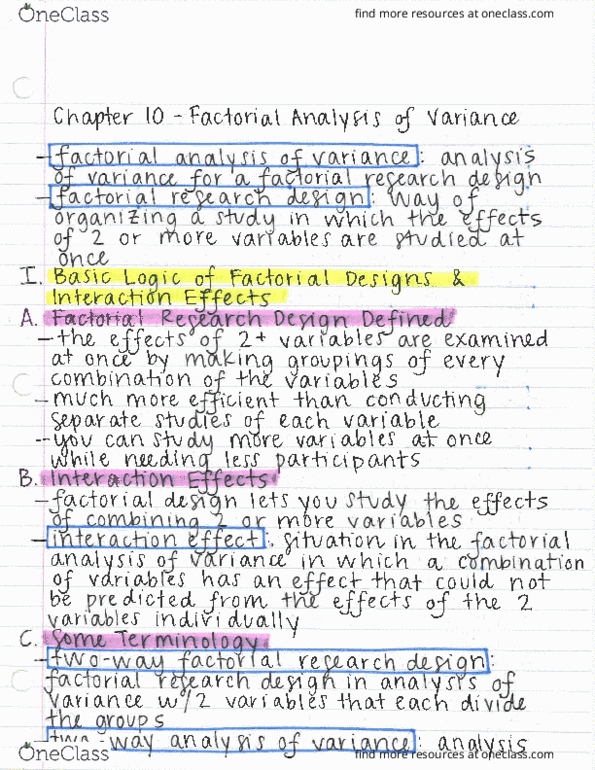 OneClass
find more resources at oneclass.com
Chapter 10 - Factorial Analysis of Variance
- factorial analysis of variance: analysis
of variance for a factorial research design
- factorial research design: way of
organizing a study in which the effects
of 2 or more variables are studied at
once
I. Basic Logic of Factorial Designs &
Interaction Effects
A. Factorial Research Design Defined
- the effects of 2+ variables are examined
at once by making groupings of every
combination of the variables
- much more efficient than conducting
separate studies of each variable
- you can study more variables at once
while needing less participants
B. Interaction Effects
- factorial design lets you study the effects
of combining 2 or more variables
- interaction effect: situation in the factorial
analysis of variance in which a combination
of variables has an effect that could not
be predicted from the effects of the 2
variables individually
C. Some Terminology
- two-way factorial research design:
factorial research design in analysis of
variance w/2 variables that each divide
the groups
- two-way analysis of variance: analysis
OneClass
find more resources at oneclass.com